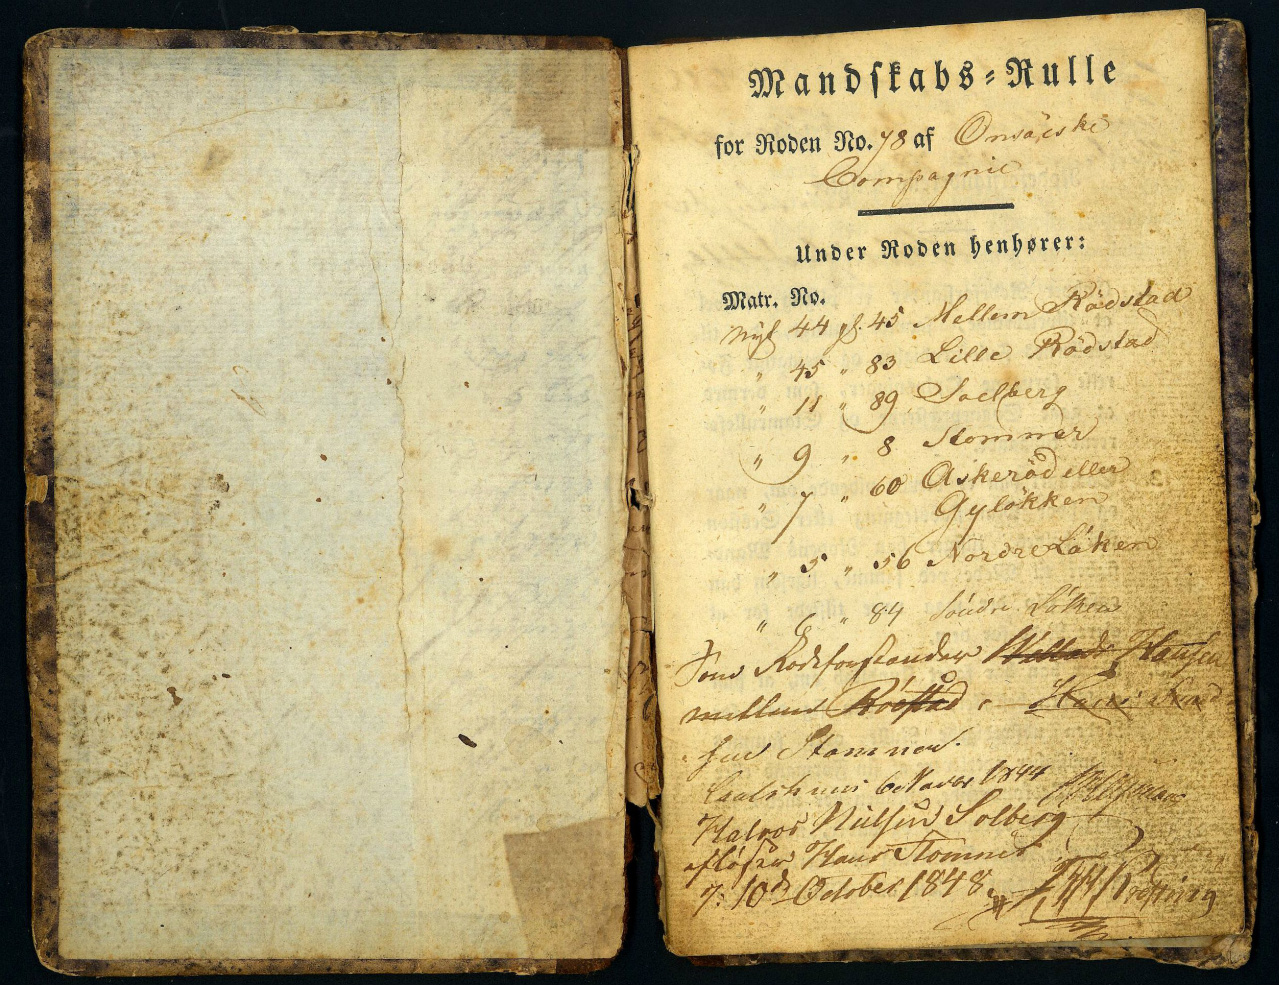 Mandskabs-Rulle
for Roden No. 78 af Onsöiske
Compagnie
Under Roden henhører:
Matr. No.
Nyt 44 gl. 45 Mellem Rödstad
" 45 " 83 Lille Rödstad
" 11 " 89 Soelberg
" 9 " 8 Stommer
" 7 " 60 Askeröd eller
Gylökken
" 5 " 56 Nordre Löken
" 6 " 84 Söndre Löken
Som Rodeforstander Hansen
mellem Röestad
Stomner.
6 Novbr 1844
Halvor Nielsen Solberg
afløser Hans Stomner
10de October 1848